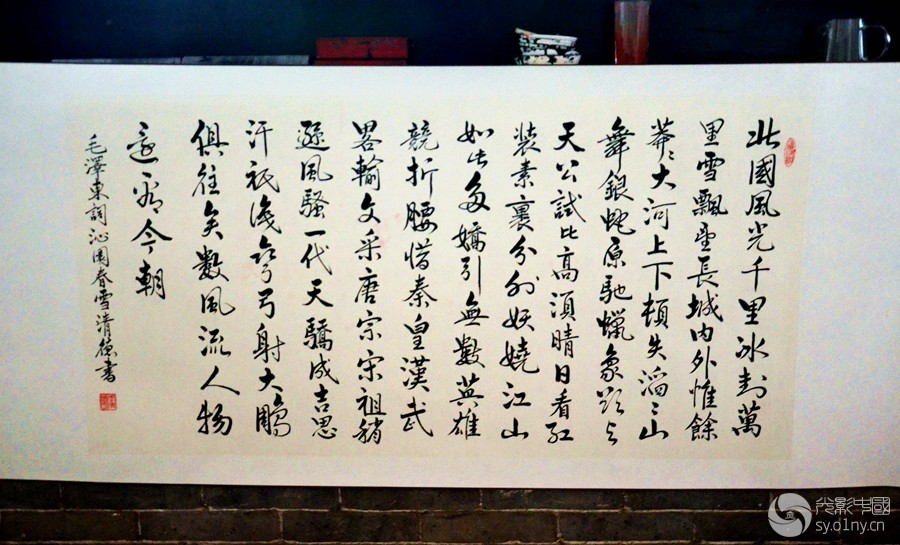 北國風光千里冰封萬
里雪飄望長城内外惟餘
莽〻大河上下頓失滔〻山
舞銀蛇原馳蠟象欲与
天公試比高須晴日看紅
装素裹分外妖嬈江山
如此多嬌引無數英雄
競折腰惜秦皇漢武
畧輸文采唐宗宋祖稍
遜風騷一代天驕成吉思
汗祇識彎弓射大鵰
俱往矣數風流人物
還看今朝
毛澤東詞沁園春雪清德書
光影中國
sy.o1ny.cn